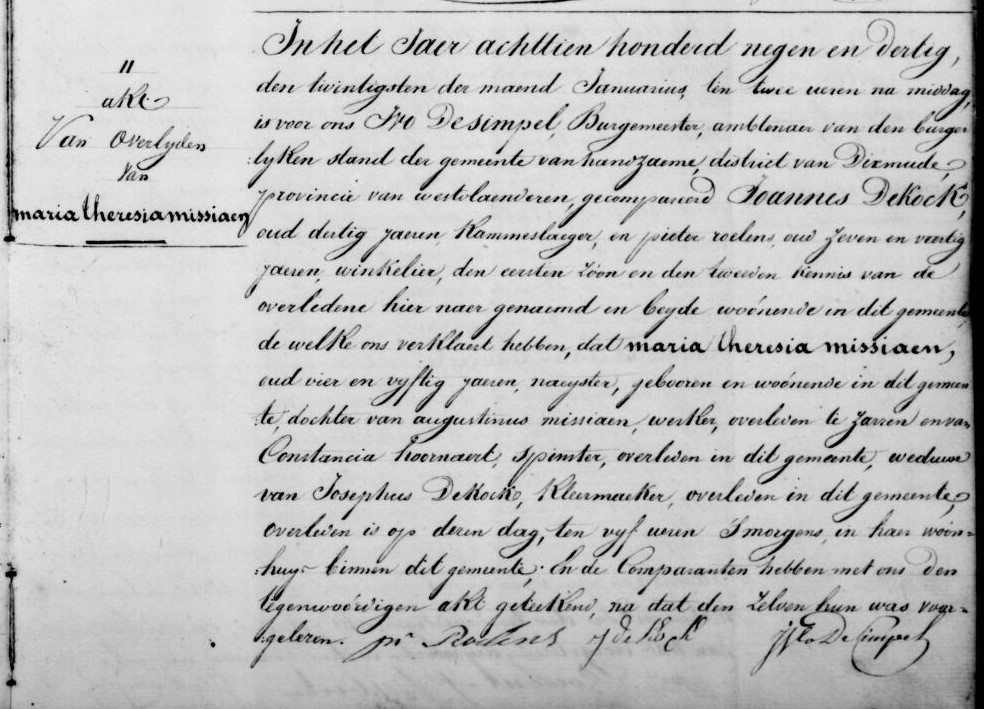 11
akt
Van Overlyden
Van
maria theresia missiaen
In het Jaer achttien honderd negen en dertig,
den twintigsten der maend Januarius, ten twee ueren na middag,
is voor ons Ivo Desimpel, Burgemeester, ambtenaer van den burger
lyken stand der gemeente van handzaeme, district van Dixmude,
provincie van westvlaenderen, gecompareerd Joannes DeKock,
oud dertig jaeren, Kammeslaeger, en pieter roelens, oud zeven en veertig
jaeren, winkelier, den eersten zóon en den tweeden kennis van de
overledene hier naer genaemd en beyde woónende in dit gemeente,
de welke ons verklaert hebben, dat maria theresia missiaen,
oud vier en vyftig jaeren, naeyster, gebooren en woónende in dit gemeen
te, dochter van augustinus missiaen, werker, overleden te zarren en van
Constancia hoornaert, spinster, overleden in dit gemeente, weduwe
van Josephus DeKock, Kleermaeker, overleden in dit gemeente,
overleden is op dezen dag, ten vyf ueren Smorgens, in haer woon=
:huys binnen dit gemeente; En de Comparanten hebben met ons den
tegenwoórdigen akt geteekend, na dat den Zelven hun was voor=
:gelezen. pr Roelens J deKock Ivo DeSimpel